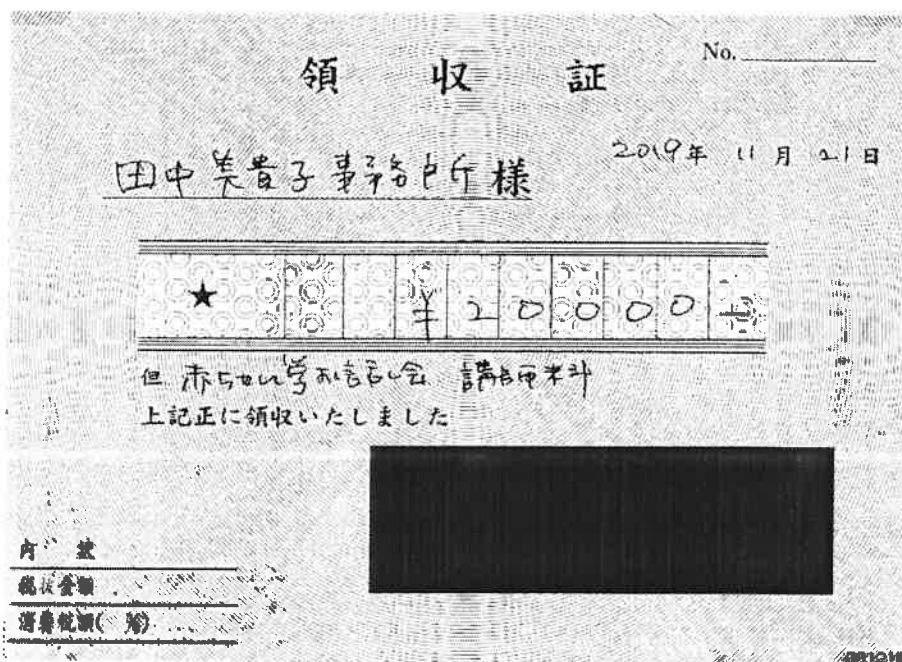 領収証
No.
2019年 11月 21日
田中美貴子事務所様
★ ¥20000-
但 赤ちゃん学お話し会 講師料
上記正に領収いたしました
内訳
税抜金額
消費税額( %)